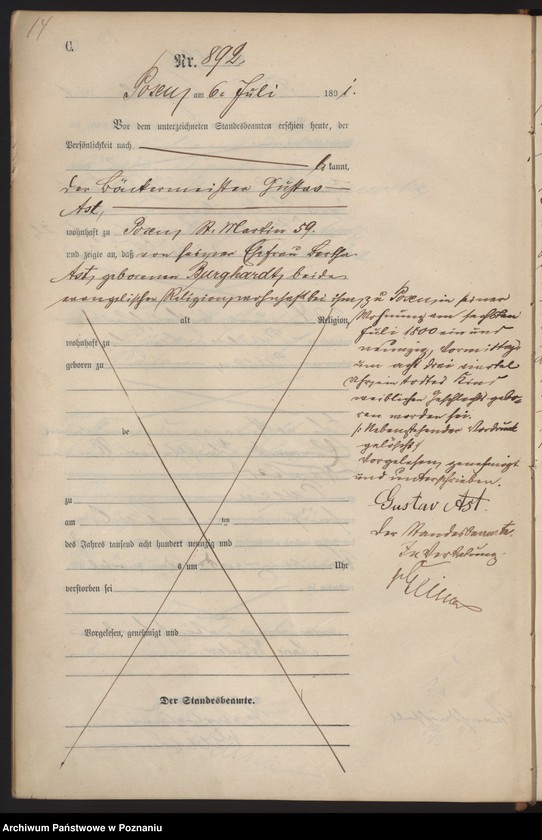 14
C.
Nr. 892.
Posen am 6. Juli 1891.
Vor dem unterzeichneten Standesbeamten erschien heute, der
Persönlichkeit nach
kannt,
der Bäckermeister Gustav
Ast,
wohnhaft zu Posen St. Martin 59.
und zeigte an, daß von seiner Ehefrau Bertha
Ast, geborenen Burghardt, beide
evangelischer Religion, wohnhaft bei ihm,
zu Posen in seiner
Wohnung am sechsten
Juli 1800 ein und
neunzig, Vormittags
um acht drei viertel
Uhr, ein todtes Kind
weiblichen Geschlechts gebo-
ren worden sei.
/: Nebenstehender Vordruck
gelöscht
Vorgelesen, genehmigt
und unterschrieben.
Gustav Ast.
Der Standesbeamte.
In Vertretung.
alt Religion,
wohnhaft zu
geboren zu
de
zu
am ten
des Jahres tausend acht hundert neunzig und
s um Uhr
verstorben sei
Vorgelesen, genehmigt und
Der Standesbeamte.
Archiwum Państwowe w Poznaniu